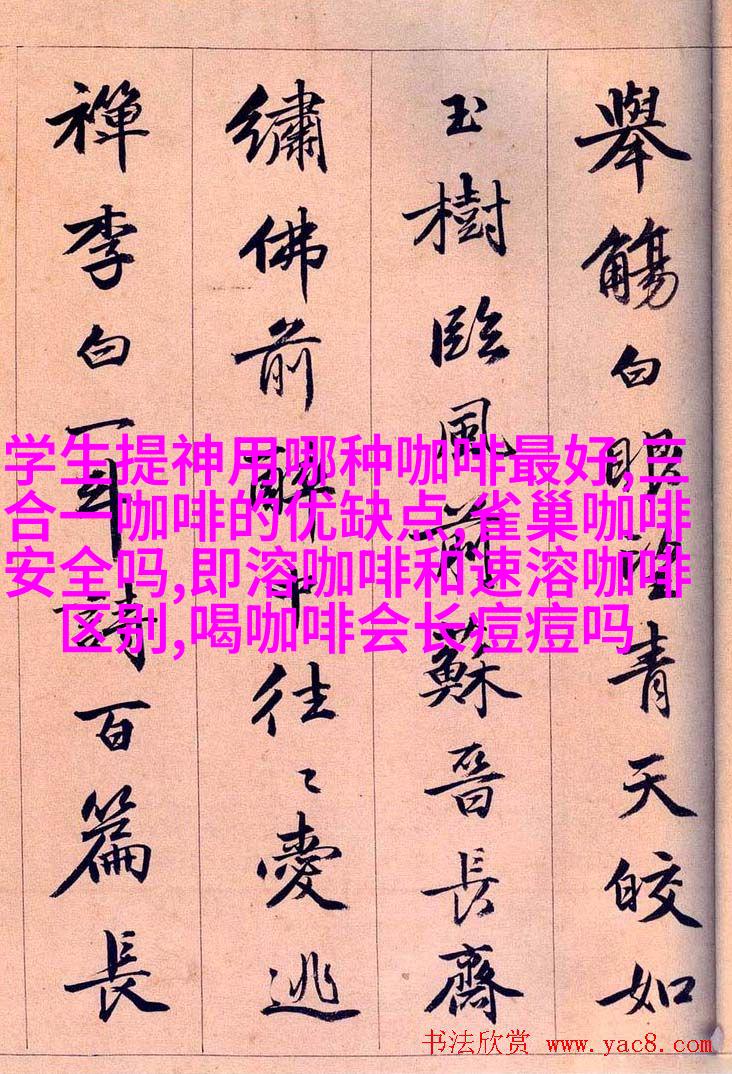 舉觴白眼望青天皎如
玉樹臨風前蘇晉長齋
繡佛前醉中往々愛逃
禪李白一斗詩百篇長
学生提神用哪种咖啡最好,三
合一咖啡的优缺点,雀巢咖啡
安全吗,即溶咖啡和速溶咖啡
区别,喝咖啡会长痘痘吗
书法欣赏 www.yac8.com